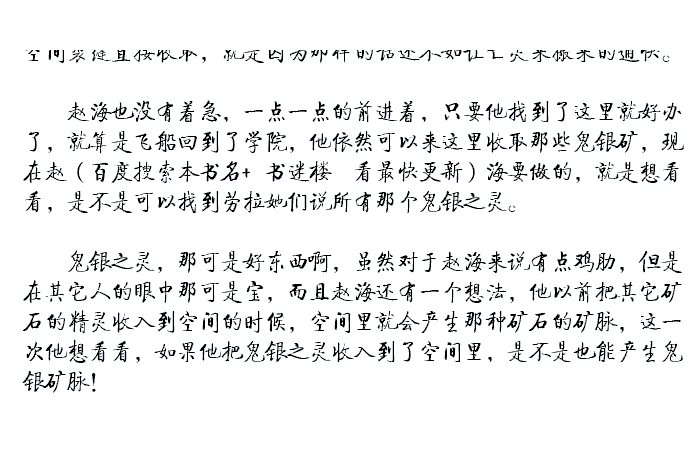 空间裂缝直接收取，就是因为那样的话还不如让亡灵来搬来的通快。
赵海也没有着急，一点一点的前进着，只要他找到了这里就好办
了，就算是飞船回到了学院，他依然可以来这里收取那些鬼银矿，现
在赵（百度搜索本书名+ 书迷楼 看最快更新）海要做的，就是想看
看，是不是可以找到劳拉她们说所有那个鬼银之灵。
鬼银之灵，那可是好东西啊，虽然对于赵海来说有点鸡肋，但是
在其它人的眼中那可是宝，而且赵海还有一个想法，他以前把其它矿
石的精灵收入到空间的时候，空间里就会产生那种矿石的矿脉，这一
次他想看看，如果他把鬼银之灵收入到了空间里，是不是也能产生鬼
银矿脉！